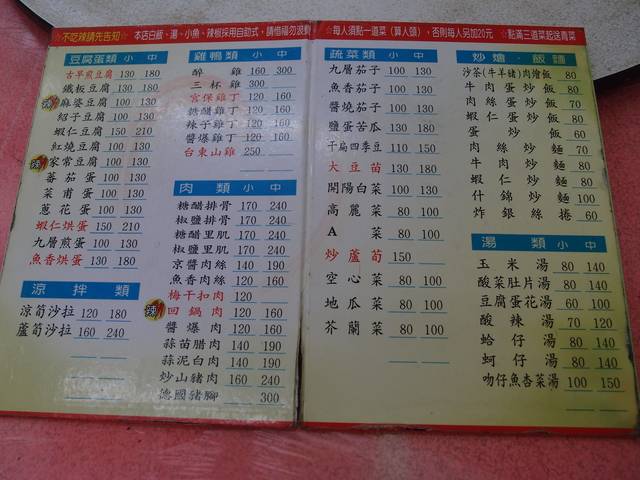 ☆不吃辣請先告知☆ 本店白飯、湯、小魚、辣椒採用自助式，請惜福勿浪費
豆腐蛋類 小 中
古早煎豆腐 130 180
鐵板豆腐 130 180
麻婆豆腐 100 130
紹子豆腐 100 130
蝦仁豆腐 150 210
紅燒豆腐 100 130
家常豆腐 100 130
蕃茄蛋 100 130
菜甫蛋 100 130
蔥花蛋 100 130
蝦仁烘蛋 150 210
九層煎蛋 100 130
魚香烘蛋 130 180
涼拌類
涼筍沙拉 120 180
蘆筍沙拉 160 240
雞鴨類 小 中
醉雞 160 300
三杯雞 300
宮保雞丁 120 160
糖醋雞丁 120 160
辣子雞丁 120 160
醬爆雞丁 120 160
台東山雞 250
肉類 小 中
糖醋排骨 170 240
椒鹽排骨 170 240
糖醋里肌 170 240
椒鹽里肌 170 240
京醬肉絲 140 190
魚香肉絲 120 160
梅干扣肉 120
回鍋肉 120 160
醬爆肉 120 160
蒜苗腊肉 140 190
蒜泥白肉 140 190
炒山豬肉 160 240
德國豬腳 300
☆每人須點一道菜（算人頭），否則每人另加20元 ☆點滿三道菜起送青菜
蔬菜類 小 中
九層茄子 100 130
魚香茄子 100 130
醬燒茄子 100 130
鹽蛋苦瓜 130 180
干扁四季豆 110 150
大豆苗 130 180
開陽白菜 100 130
高麗菜 80 100
A菜 80 100
炒蘆筍 150
空心菜 80 100
地瓜菜 80 100
芥蘭菜 80 100
炒燴．飯麵
沙茶(牛羊豬)肉燴飯 80
牛肉蛋炒飯 80
肉絲蛋炒飯 70
蝦仁蛋炒飯 80
蛋炒飯 60
肉絲炒麵 70
牛肉炒麵 80
蝦仁炒麵 80
什錦炒麵 100
炸銀絲捲 60
湯類 小 中
玉米湯 80 140
酸菜肚片湯 80 140
豆腐蛋花湯 60 100
酸辣湯 70 120
蛤仔湯 80 140
蚵仔湯 80 140
吻仔魚杏菜湯 100 150